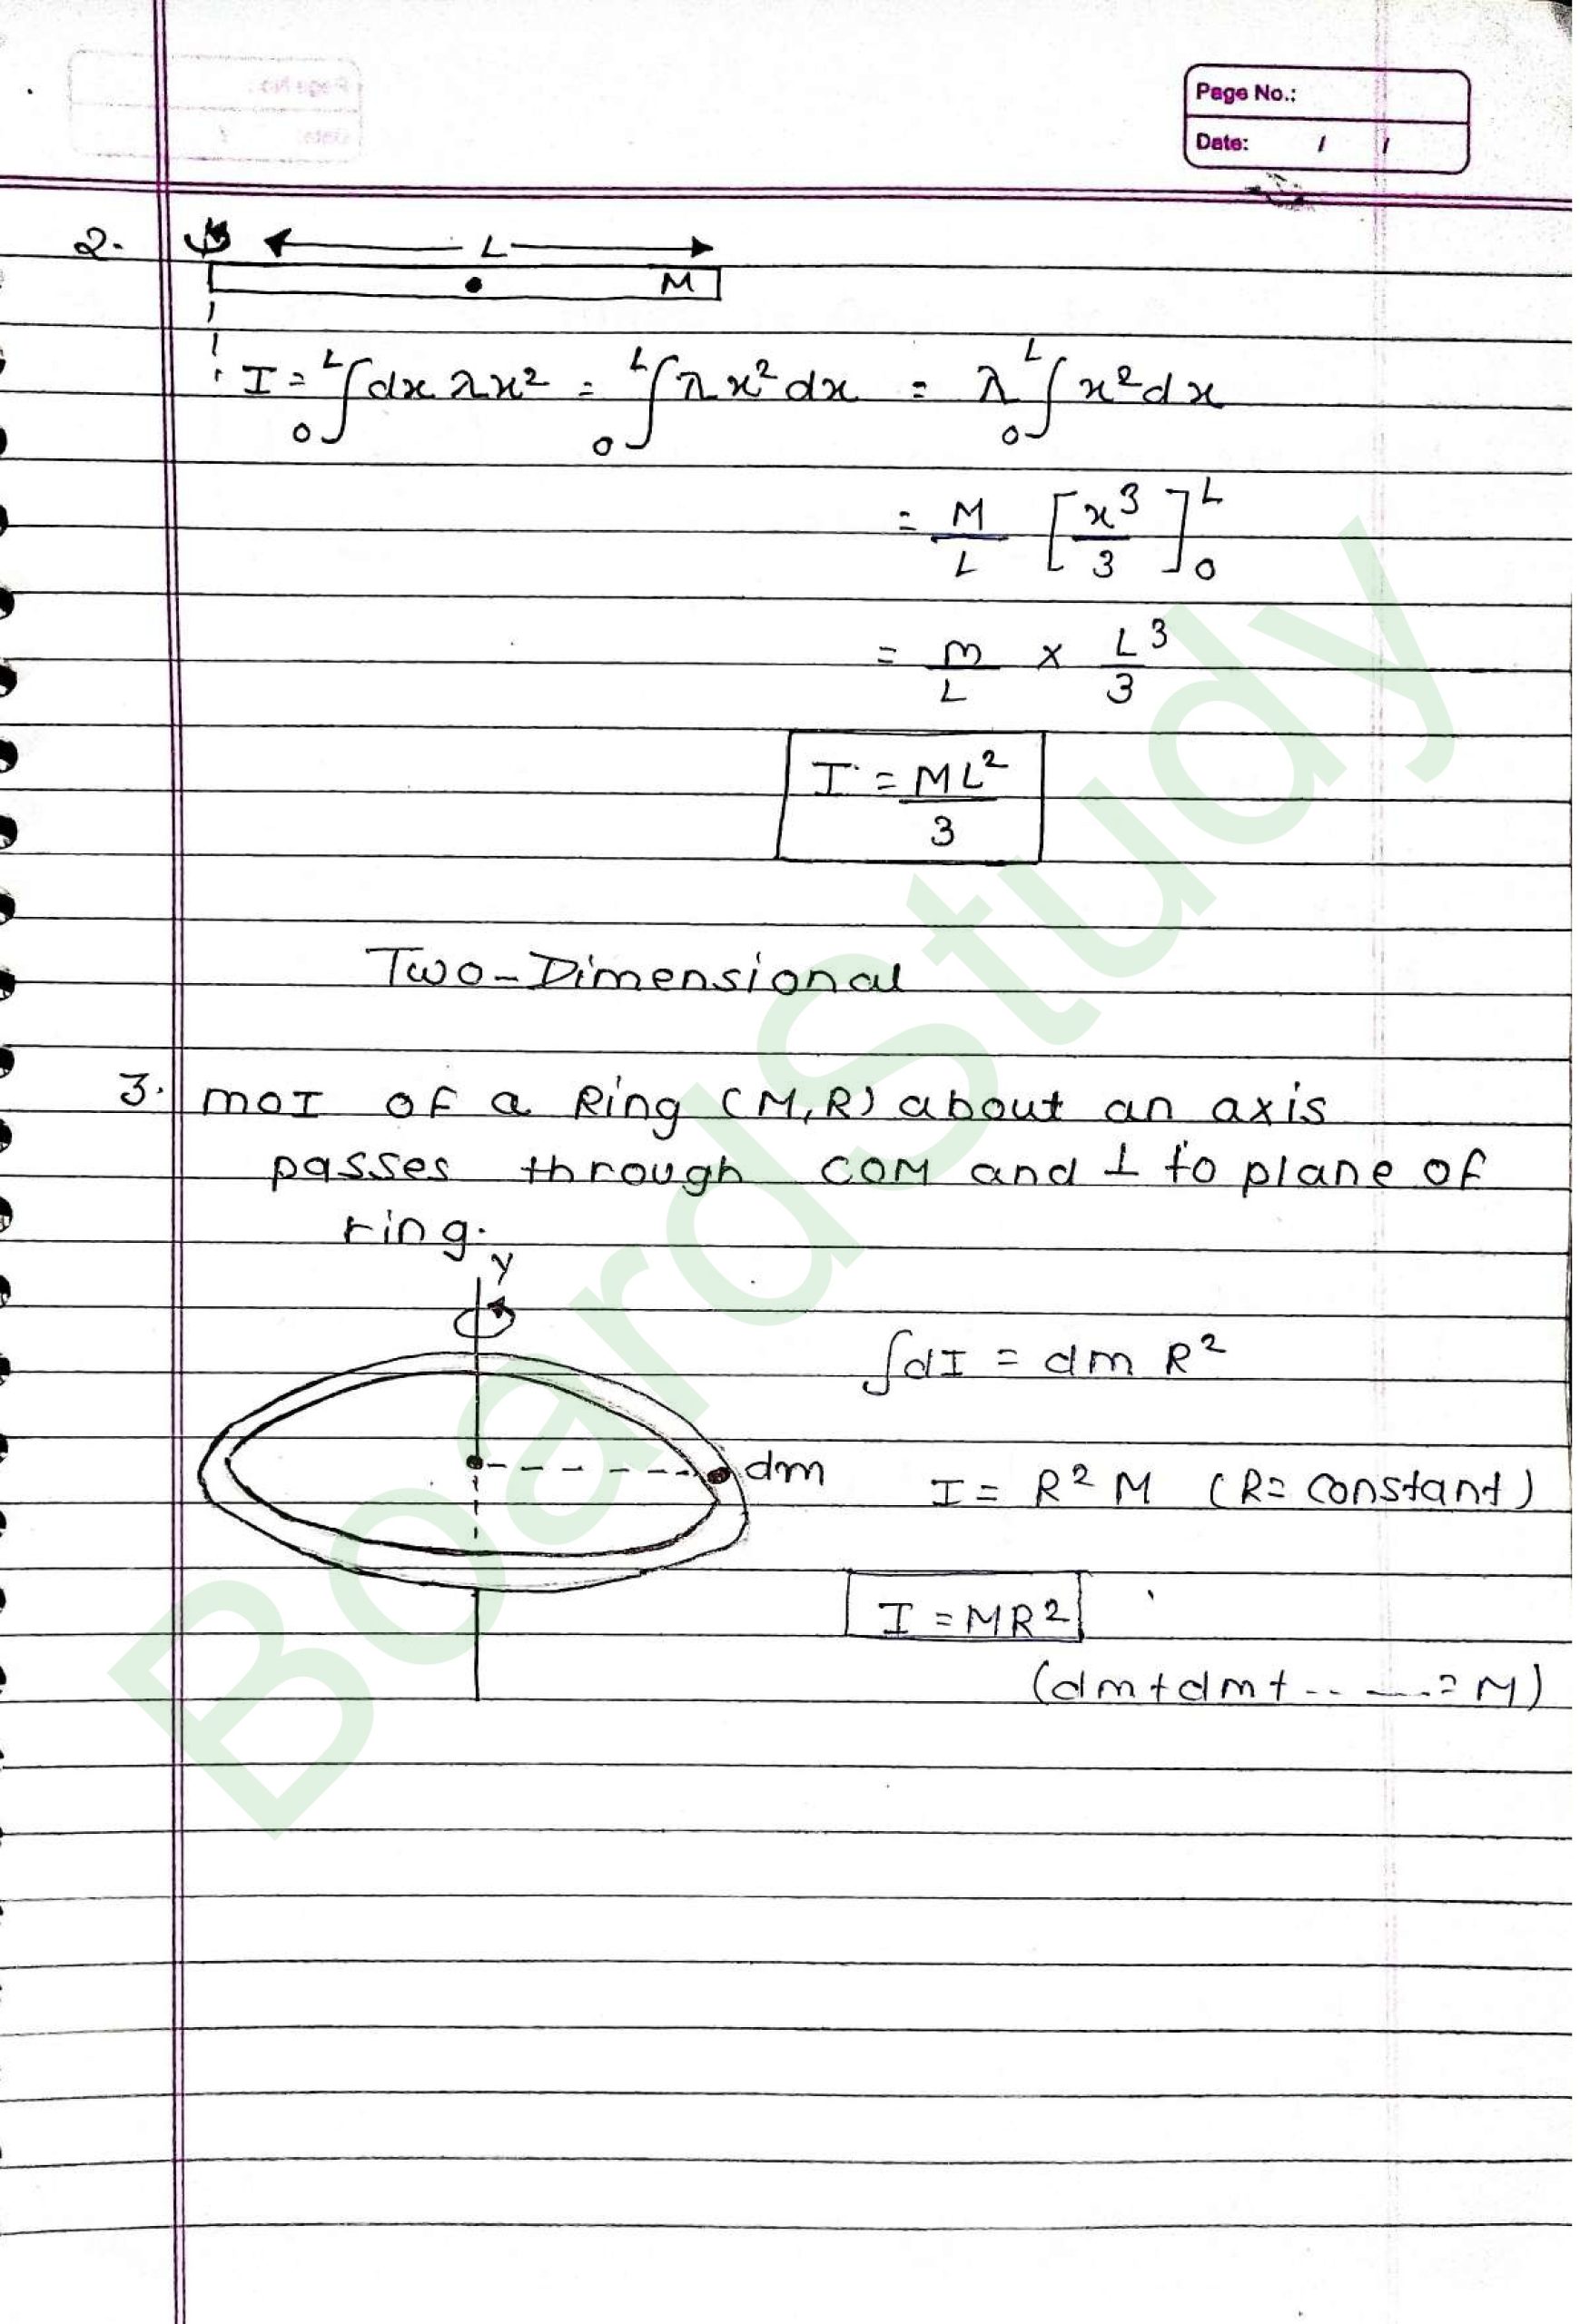 Page No.:
Date: / /
2. L
M
I = ₀ᴸ∫ dx λx² = ₀ᴸ∫ λx² dx = λ ₀ᴸ∫ x² dx
= M/L [x³/3]₀ᴸ
= m/L × L³/3
I = ML²/3
Two-Dimensional
3. MOI OF a Ring (M,R) about an axis
passes through COM and ⊥ to plane of
ring.
y
∫dI = dm R²
dm
I = R² M (R = constant)
I = MR²
(dm+dm+-- ---- = M)
BoardStudy